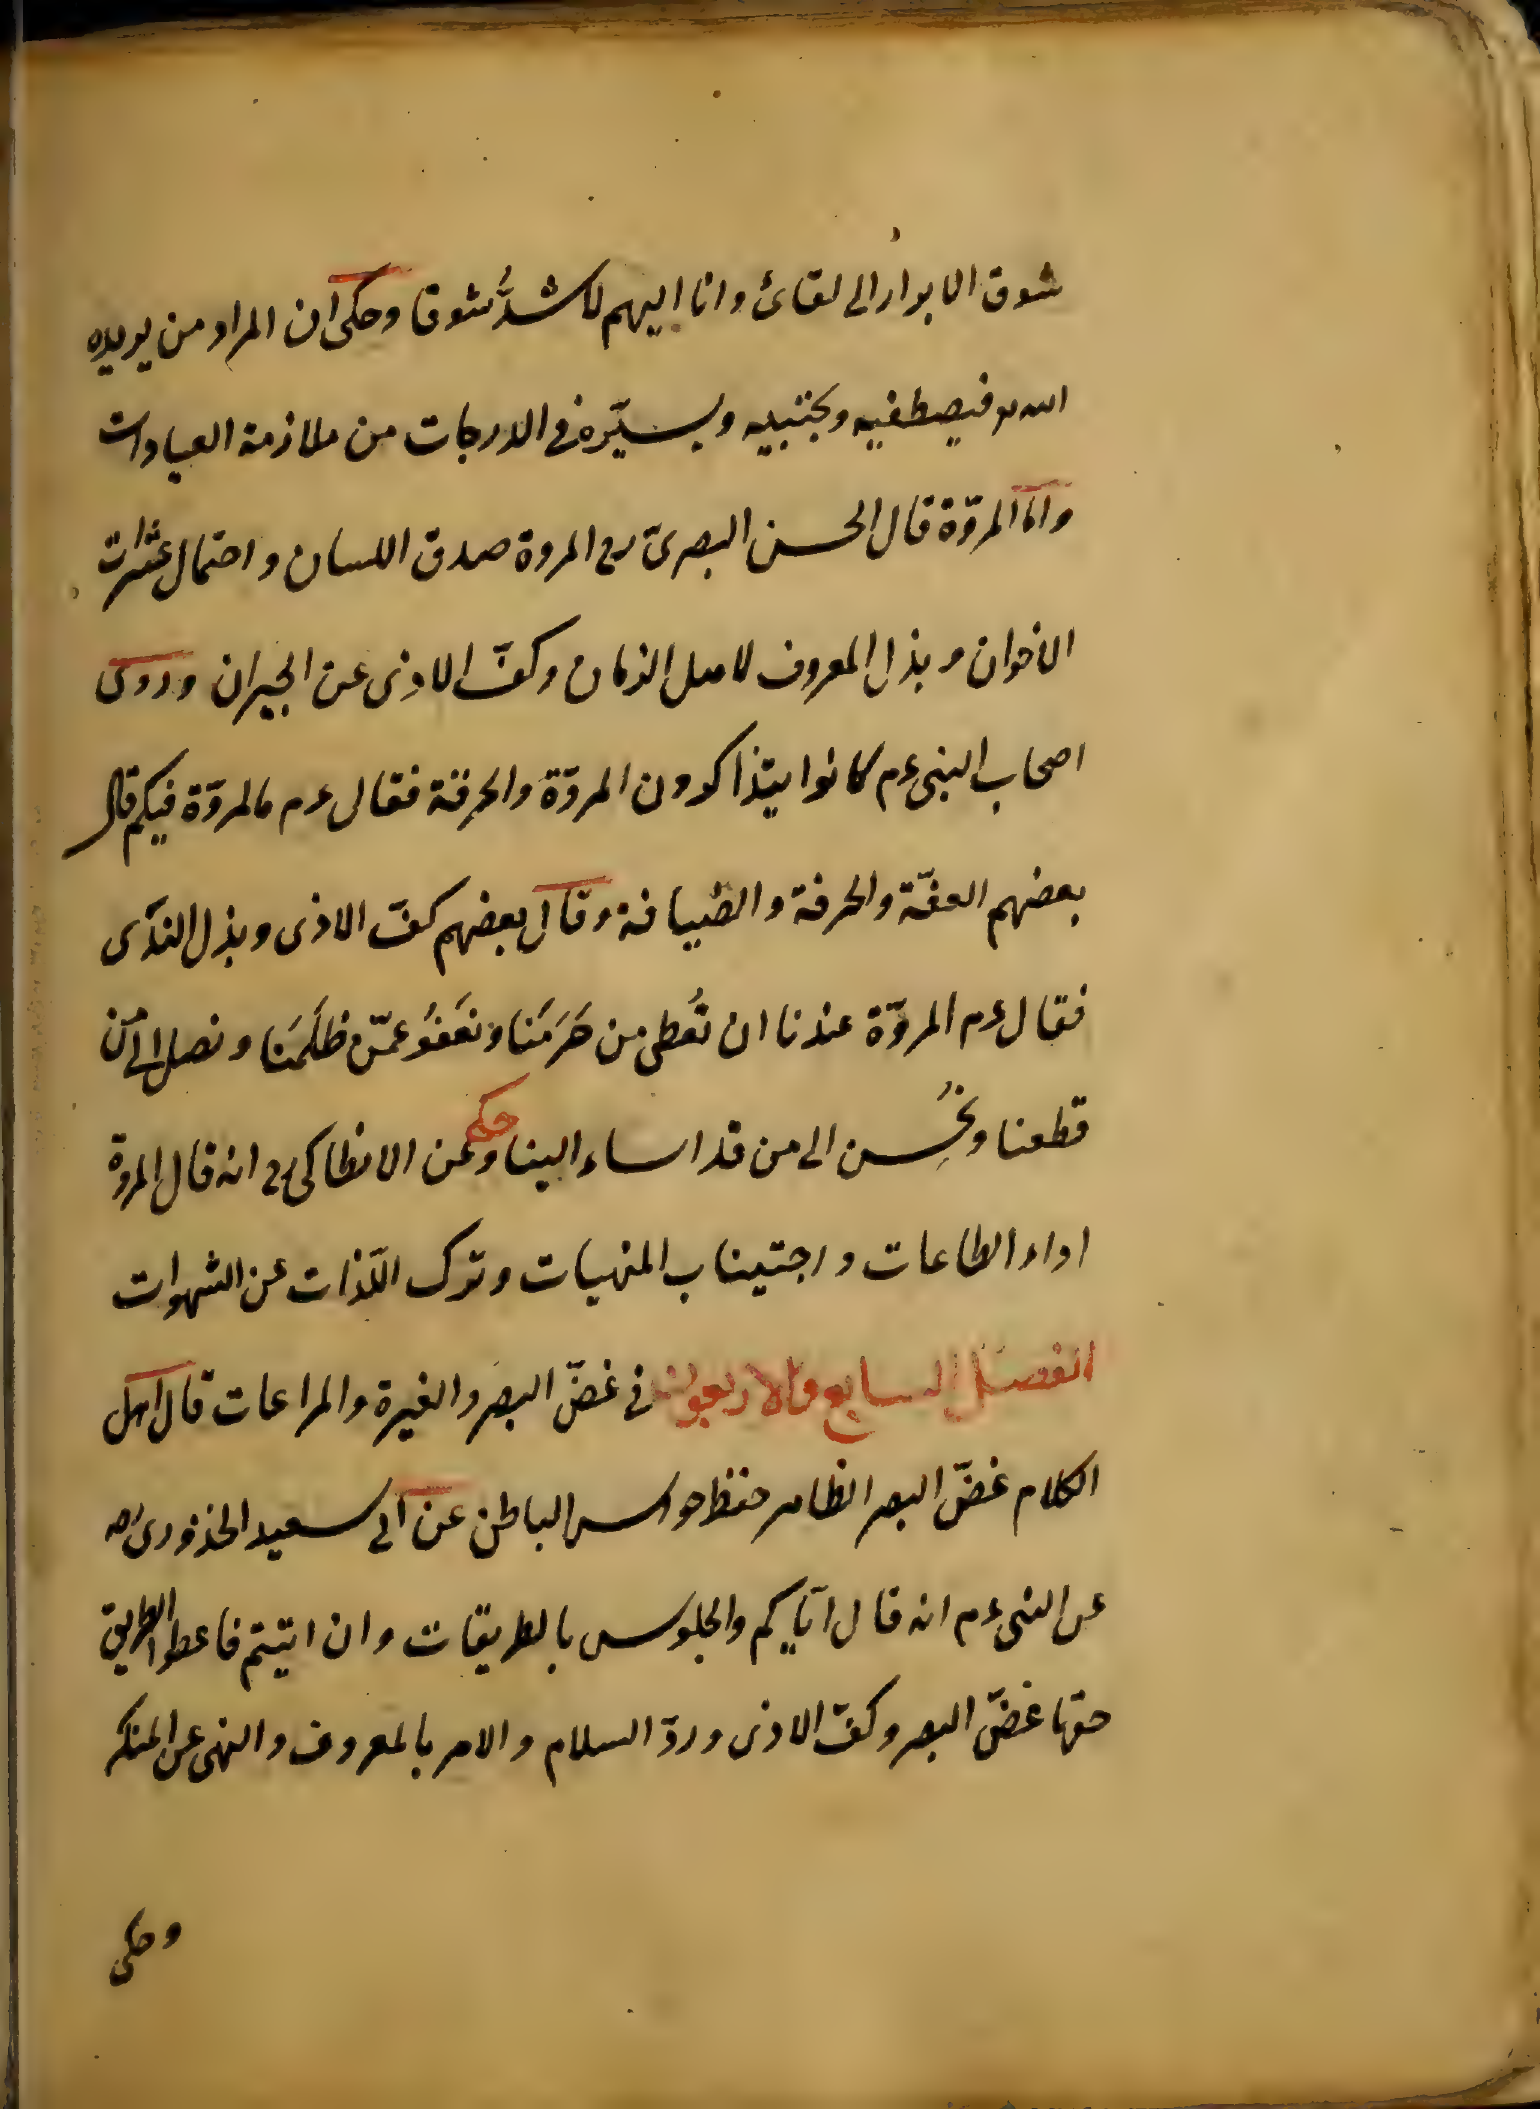 شوق الابرار الى لقائ وانا اليهم لاشدُّ شوقا وحكى ان المراد من يريده
الله تع فيصطفيه ويجتبيه ويسيّره فى الدرجات من ملازمة العبادات
واما المروّة قال الحسن البصرىّ رح المروة صدق اللسان واحتمال عثرات
الاخوان وبذل المعروف لاهل الزمان وكفّ الاذى عن الجيران وروى
اصحاب النبى ع م كانوا يتذاكرون المروّة والحرفة فقال ع م مالمروّة فيكم قال
بعضهم العفّة والحرفة والضيافة وقال بعضهم كفّ الاذى وبذل الندى
فقال ع م المروّة عندنا ان نُعطى من حَرَمَنا ونعَفُو عمّن ظلَمَنا ونصل الى من
قطعنا ونُحسِن الى من قد اساء الينا وحكى عن الانطاكى رح انه قال المروة
اداء الطاعات واجتيناب المنهيات وترك اللّذات عن الشهوات
الفصل السابع والاربعون فى غضّ البصر والغيرة والمراعات قال اهل
الكلام غضّ البصر الظاهر حفظ حواس الباطن عن ابى سعيد الخذورى رضه
عن النبى ع م انه قال ايّاكم والجلوس بالطريقات وان ابيتم فاعطوا الطريق
حقها غضّ البصر وكفّ الاذى وردّ السلام والامر بالمعروف والنهى عن المنكر
وحكى